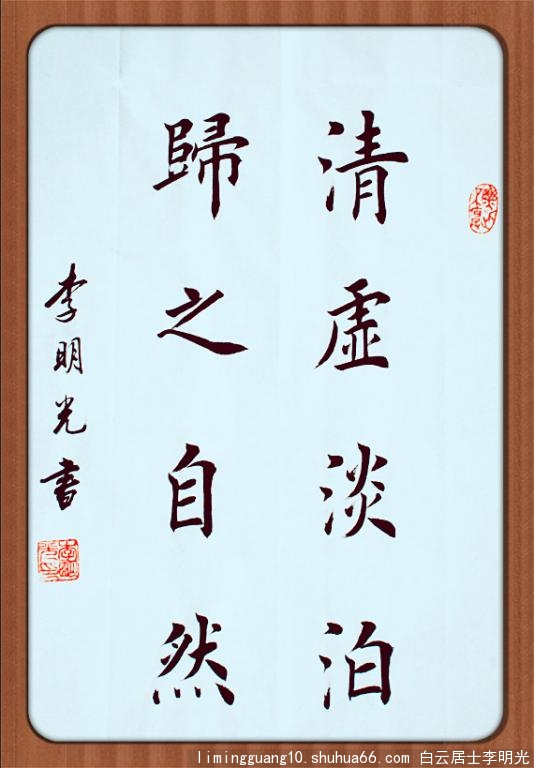 清虚淡泊
歸之自然
李明光書
limingguang10.shuhua66.com 白云居士李明光